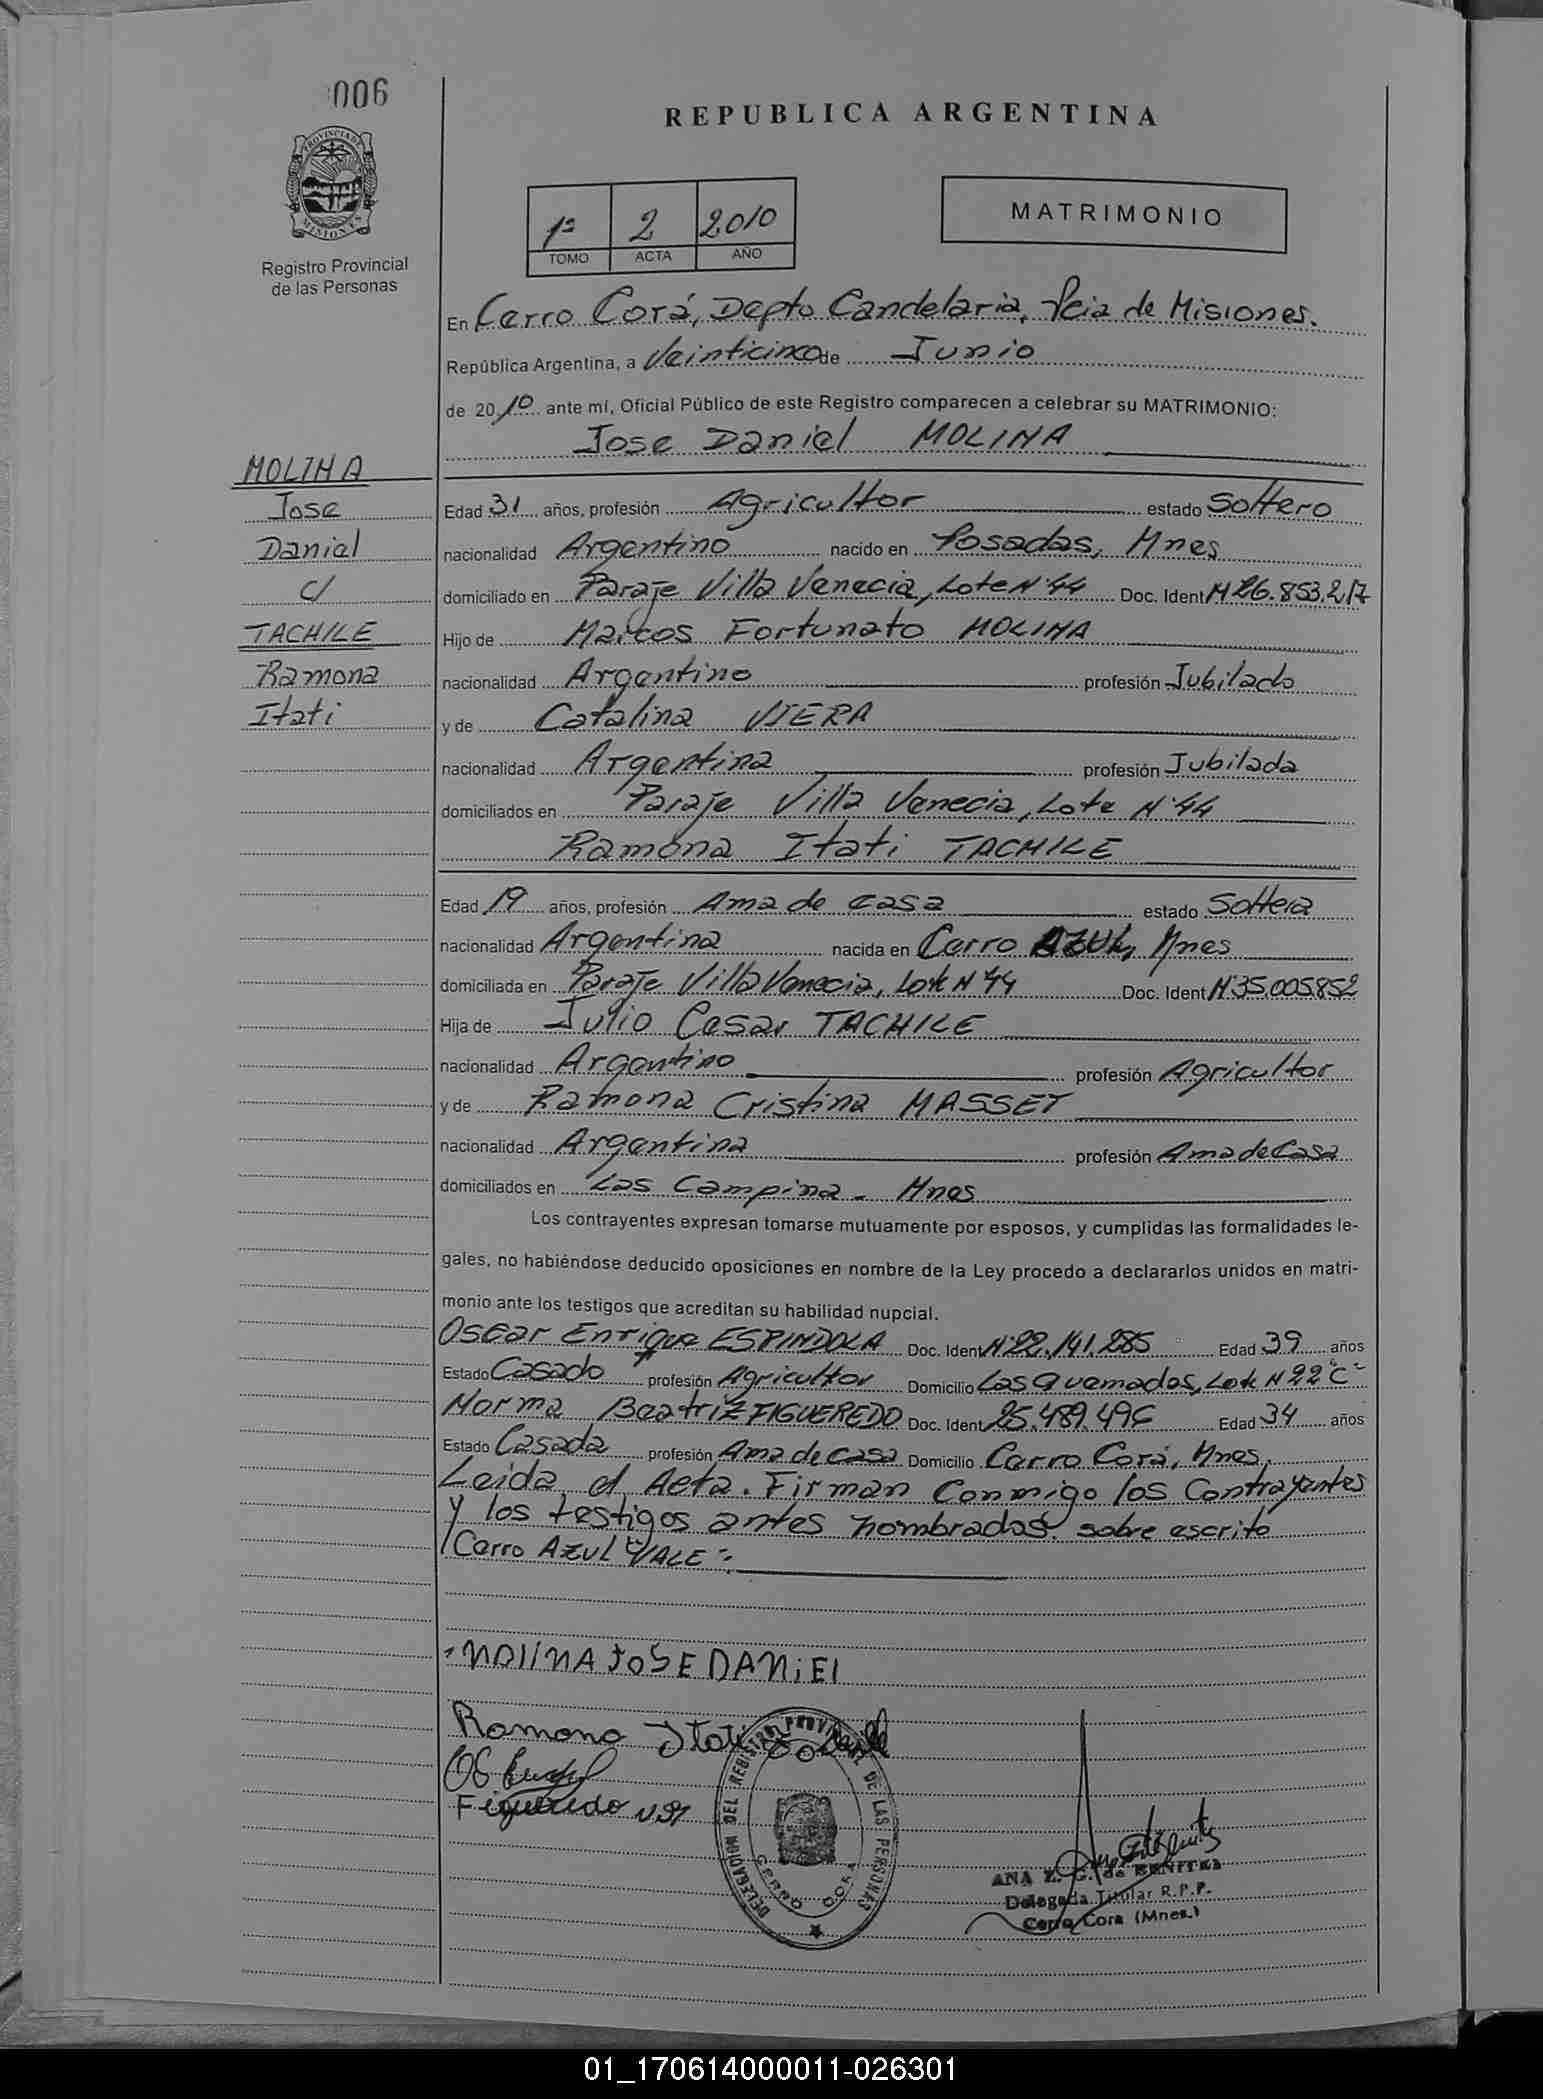 006
REPUBLICA ARGENTINA
PROVINCIA DE MISIONES
Registro Provincial
de las Personas
1º 2 2010
TOMO ACTA AÑO
MATRIMONIO
En Cerro Corá, Depto Candelaria, Pcia de Misiones.
República Argentina, a Veinticinco de Junio
de 2010 ante mí, Oficial Público de este Registro comparecen a celebrar su MATRIMONIO:
Jose Daniel MOLINA
MOLINA
Jose
Daniel
c/
TACHILE
Ramona
Itati
Edad 31 años, profesión Agricultor estado Soltero
nacionalidad Argentino nacido en Posadas, Mnes
domiciliado en Paraje Villa Venecia, Lote Nº44 Doc. Ident Nº26.853.217
Hijo de Marcos Fortunato MOLINA
nacionalidad Argentino profesión Jubilado
y de Catalina VIERA
nacionalidad Argentina profesión Jubilada
domiciliados en Paraje Villa Venecia, Lote Nº44
Ramona Itati TACHILE
Edad 19 años, profesión Ama de casa estado Soltera
nacionalidad Argentina nacida en Cerro AZUL, Mnes
domiciliada en Paraje Villa Venecia, Lote Nº44 Doc. Ident Nº35.005.852
Hija de Julio Cesar TACHILE
nacionalidad Argentino profesión Agricultor
y de Ramona Cristina MASSET
nacionalidad Argentina profesión Ama de Casa
domiciliados en Las Campina - Mnes
Los contrayentes expresan tomarse mutuamente por esposos, y cumplidas las formalidades le-
gales, no habiéndose deducido oposiciones en nombre de la Ley procedo a declararlos unidos en matri-
monio ante los testigos que acreditan su habilidad nupcial.
Oscar Enrique ESPINDOLA Doc. Ident Nº22.141.285 Edad 39 años
Estado Casado profesión Agricultor Domicilio Las Quemadas, Lote Nº22"C"
Norma Beatriz FIGUEREDO Doc. Ident 25.489.496 Edad 34 años
Estado Casada profesión Ama de casa Domicilio Cerro Corá, Mnes,
Leida el Acta. Firman Conmigo los Contrayentes
y los testigos antes nombrados. sobre escrito
"Cerro AZUL" VALE-:
MOlINA JOSE DANiEl
Ramona Itati
Figueredo
DELEGACION DEL REGISTRO PROVINCIAL DE LAS PERSONAS
CERRO CORA
ANA Z. G. de BENITEZ
Delegada Titular R.P.P.
Cerro Cora (Mnes.)
01_170614000011-026301